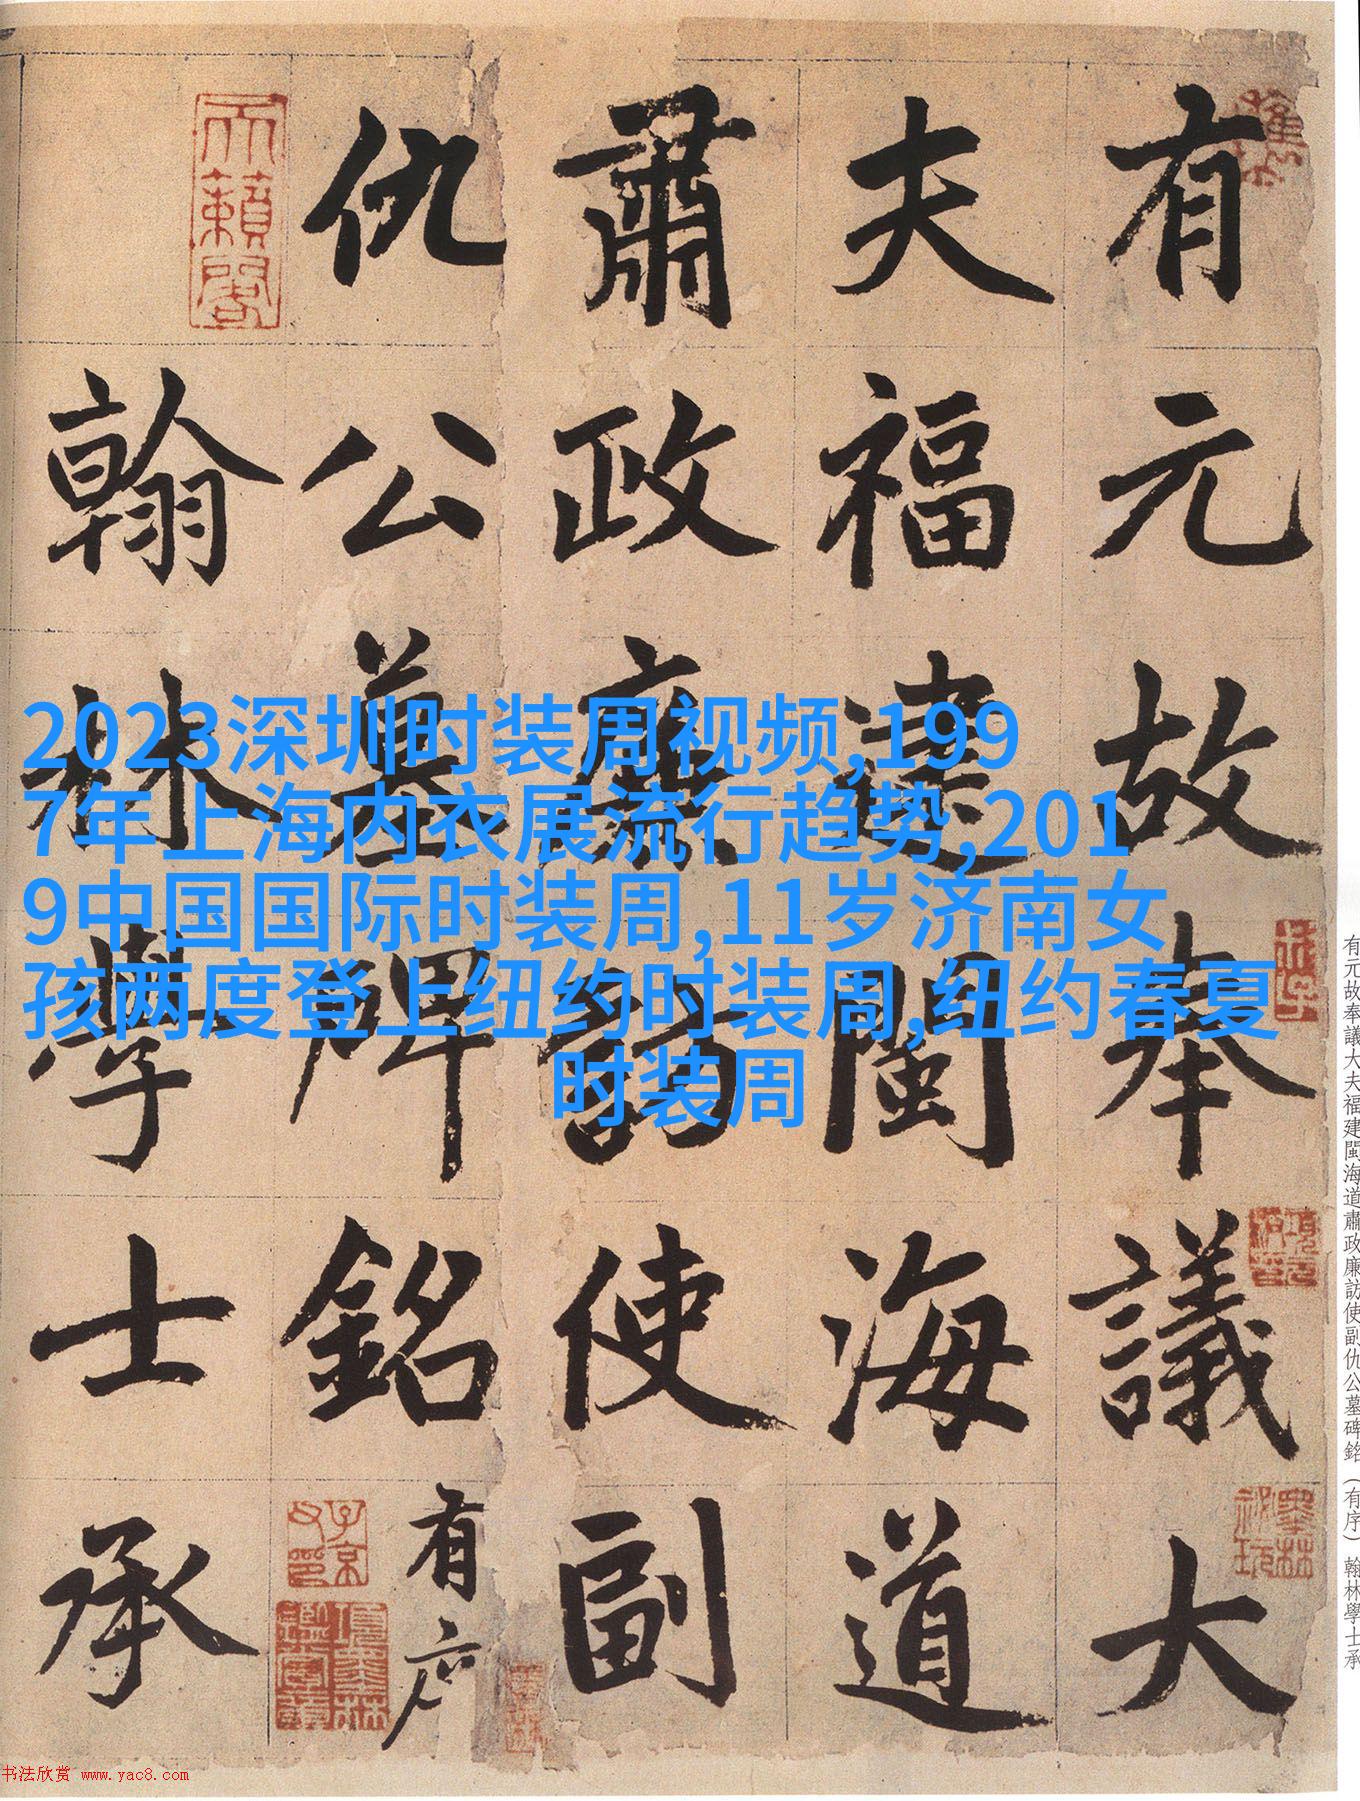 有元故奉議大
夫福建閩海道
肅政廉訪使副
仇公墓碑銘有序
翰林學士承
天籟閣
子京父印
2023深圳时装周视频,199
7年上海内衣展流行趋势,201
9中国国际时装周,11岁济南女
孩两度登上纽约时装周,纽约春夏
时装周
有元故奉議大夫福建閩海道肅政廉訪使副仇公墓碑銘(有序) 翰林學士承
书法欣赏 www.yac8.com